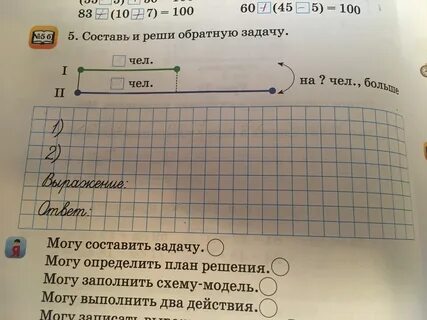 83 − (10 + 7) = 100
60 + (45 − 5) = 100
№5 б
5. Составь и реши обратную задачу.
I
чел.
II
чел.
на ? чел., больше
1)
2)
Выражение:
Ответ:
Могу составить задачу.
Могу определить план решения.
Могу заполнить схему-модель.
Могу выполнить два действия.
Могу записать